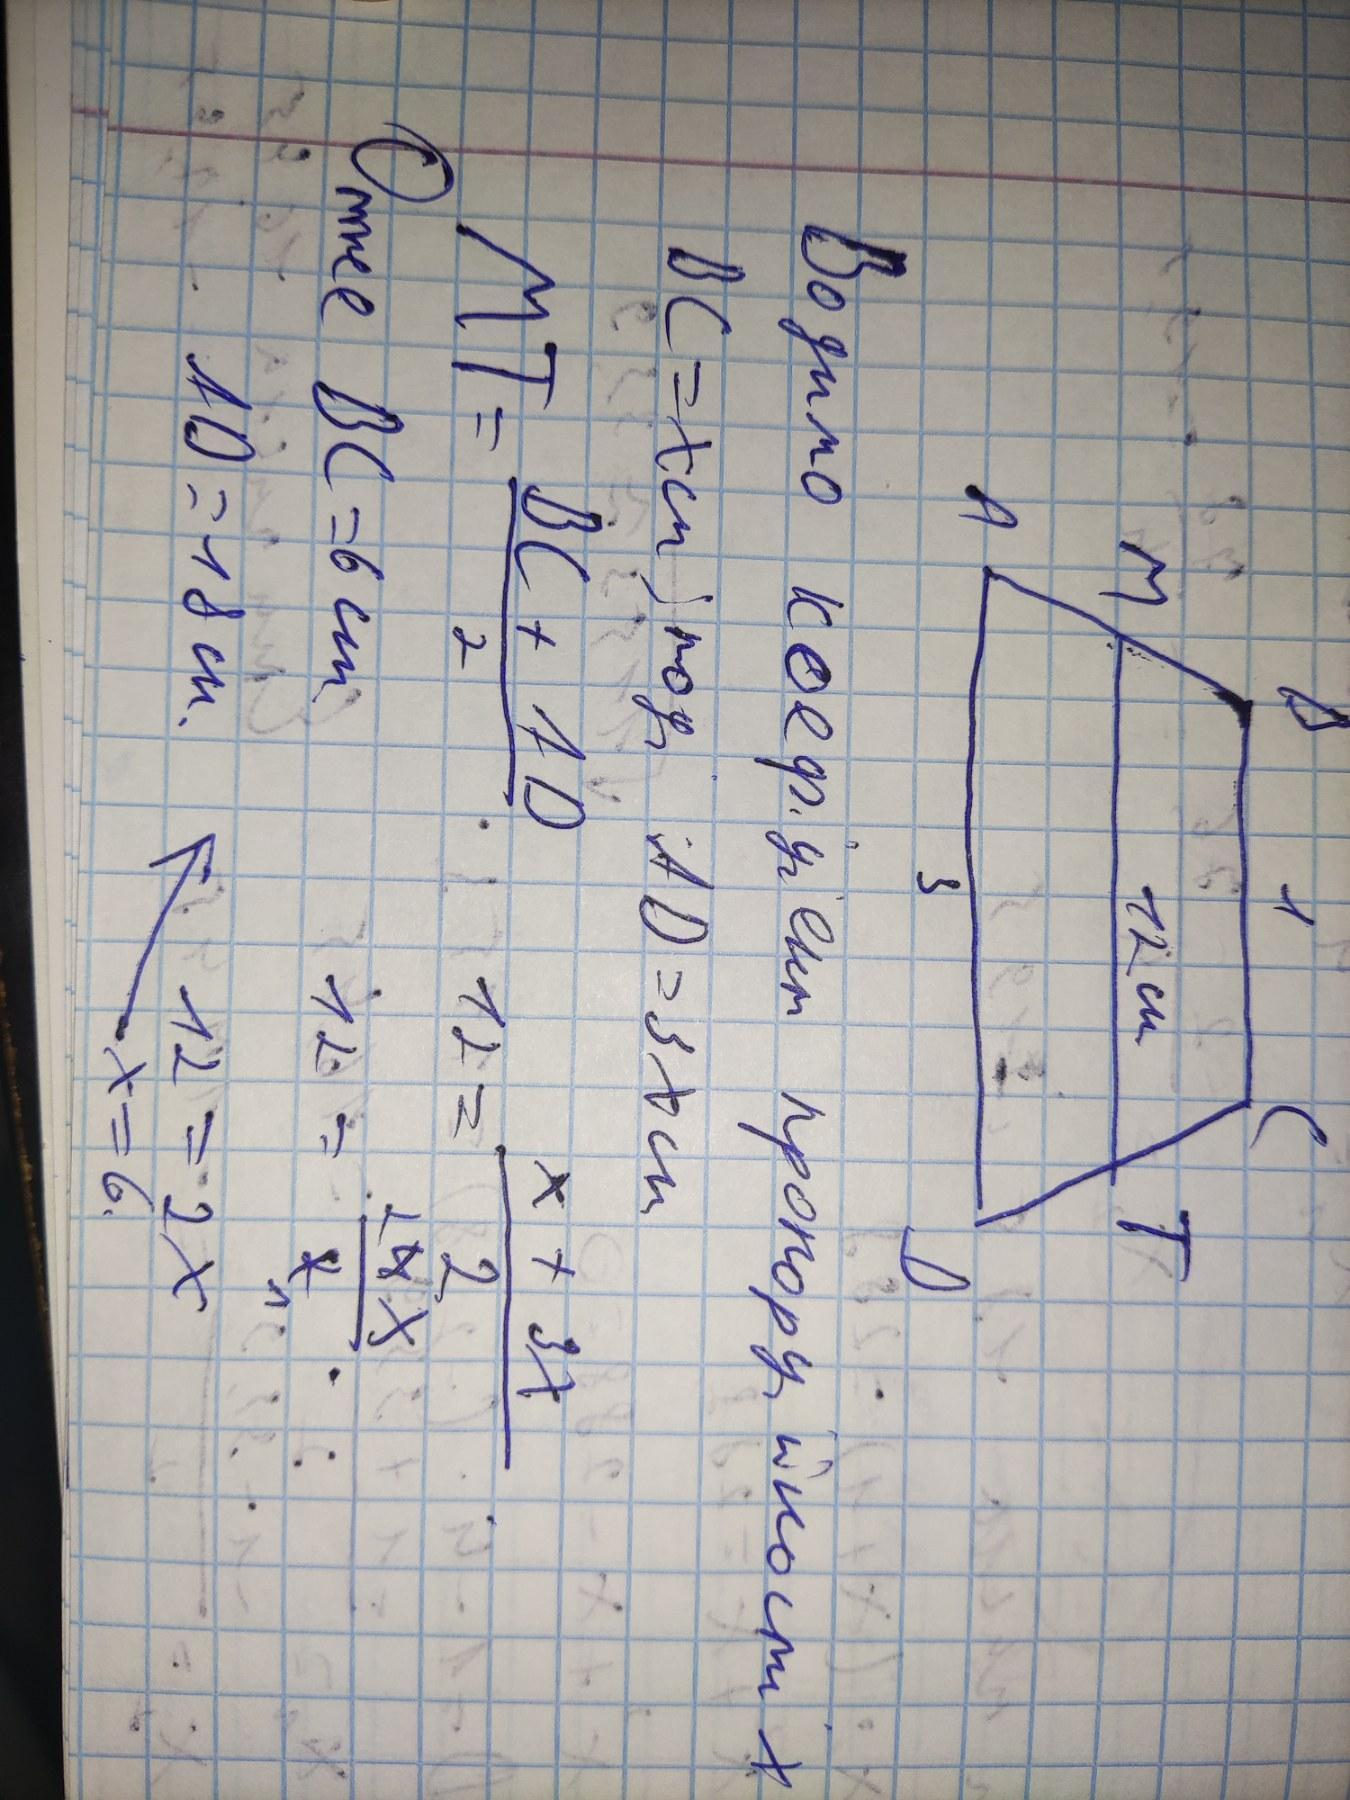 B 1 C
M 12 см T
A 3 D
Водимо коеф.цієнт пропорц,йності x
BC = x см, тод, AD = 3x см
MT = BC + AD / 2. 12 = x + 3x / 2.
Отже BC = 6 см 12 = 2 4x / 2 1.
AD = 18 см. 12 = 2x
x = 6.